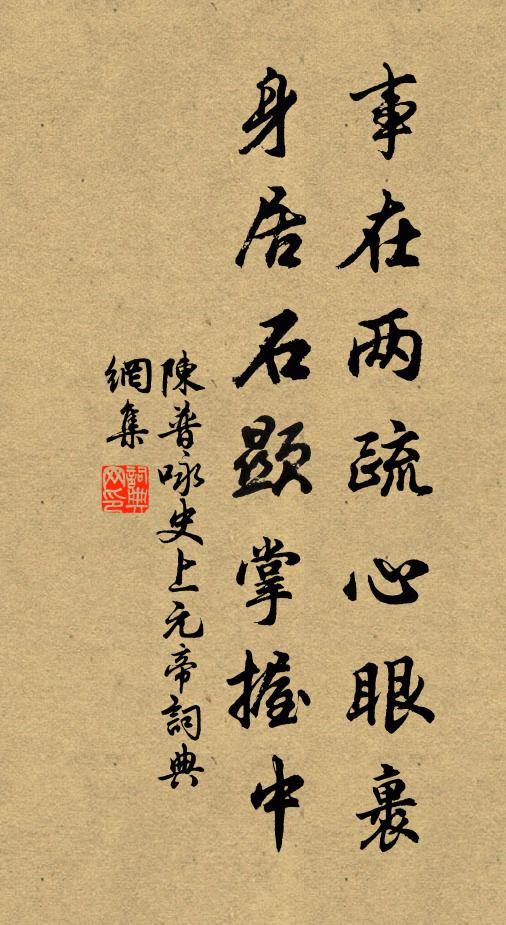 事在两疏心眼裏
身居石顯掌握中
陳普咏史上元帝詞典
網集
詞典網印